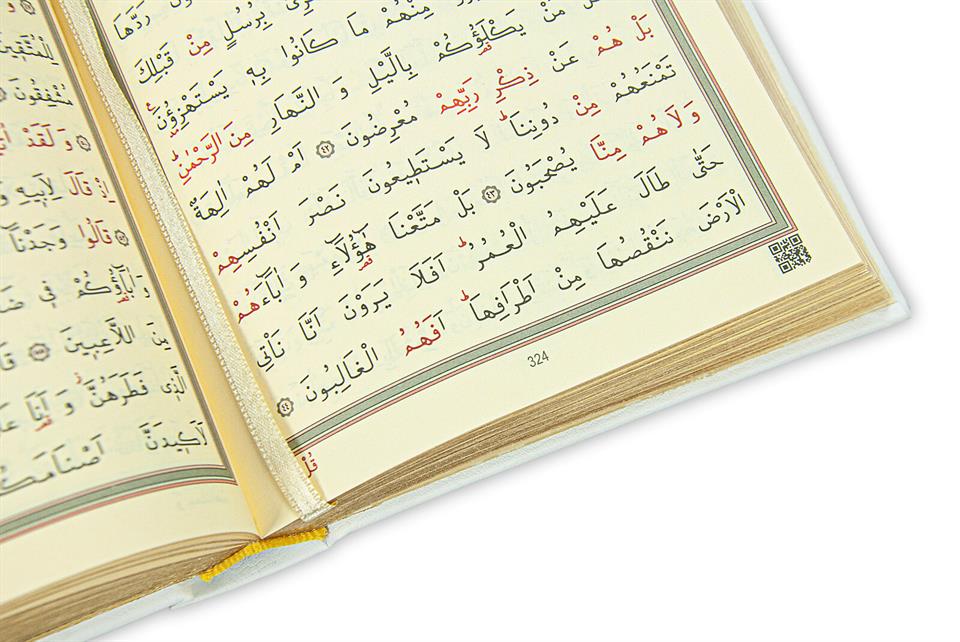 رَدَّهَا
بِرُسُلٍ مِنْ قَبْلِكَ
مِنْهُمْ مَا كَانُوا بِهٖ يَسْتَهْزِؤُنَ
مَنْ يَكْلَؤُكُمْ بِالَّيْلِ وَ النَّهَارِ مِنَ الرَّحْمٰنِ
بَلْ هُمْ عَنْ ذِكْرِ رَبِّهِمْ مُعْرِضُونَ ٤٢ اَمْ لَهُمْ اٰلِهَةٌ
تَمْنَعُهُمْ مِنْ دُونِنَا لَا يَسْتَطٖيعُونَ نَصْرَ اَنْفُسِهِمْ
وَلَا هُمْ مِنَّا يُصْحَبُونَ ٤٣ بَلْ مَتَّعْنَا هٰٓؤُلَٓاءِ وَ اٰبَٓاءَهُمْ
حَتّٰى طَالَ عَلَيْهِمُ الْعُمُرُ اَفَلَا يَرَوْنَ اَنَّا نَاْتِى
الْاَرْضَ نَنْقُصُهَا مِنْ اَطْرَافِهَا اَفَهُمُ الْغَالِبُونَ ٤٤
قُلْ
324
لِلْمُتَّقٖينَ
مُشْفِقُونَ
وَ لَقَدْ
اِذْ قَالَ لِاَبٖيهِ
قَالُوا وَجَدْنَٓا
وَ اٰبَٓاؤُكُمْ فٖى
مِنَ اللَّاعِبٖينَ
الَّذٖى فَطَرَهُنَّ وَ اَنَا
لَاَكٖيدَنَّ اَصْنَامَكُمْ